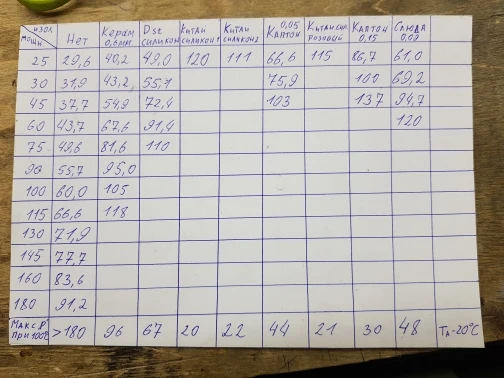 изол
мощн Нет Керам 0,6мм Dst силикон Китай силикон1 Китай силикон2 0,05 Каптон Китай сил розовый Каптон 0,15 Слюда 0,09
25 29,6 40,2 49,0 120 111 66,6 115 86,7 61,0
30 31,9 43,2 55,7 75,9 100 69,2
45 37,7 54,9 72,4 103 137 94,7
60 43,7 67,6 91,4 120
75 49,6 81,6 110
90 55,7 95,0
100 60,0 105
115 66,6 118
130 71,9
145 77,7
160 83,6
180 91,2
Макс P при 100° >180 96 67 20 22 44 21 30 48 Tд-20°C